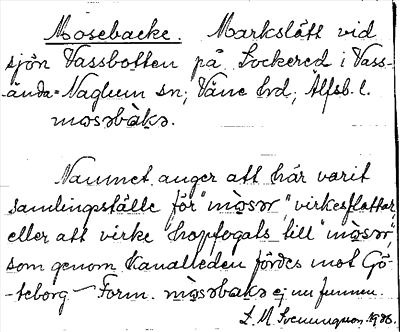 Mosebacke. Markslätt vid
sjön Vassbotten på Sockered i Vass-
-ända-Naglum sn; Väne hrd; Älfsb. l.
mosəbàkə.
Namnet anger att här varit
samlingsställe för "mòsər", virkesflottar,
eller att virke "hopfogats till "mòsər",
som genom kanalleden fördes mot Gö-
-teborg - Form. mòsəbakə ej nu funnen.